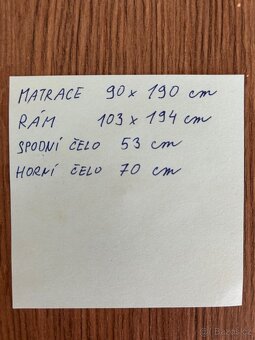 MATRACE 90 x 190 cm
RÁM 103 x 194 cm
SPODNÍ ČELO 53 cm
HORNÍ ČELO 70 cm